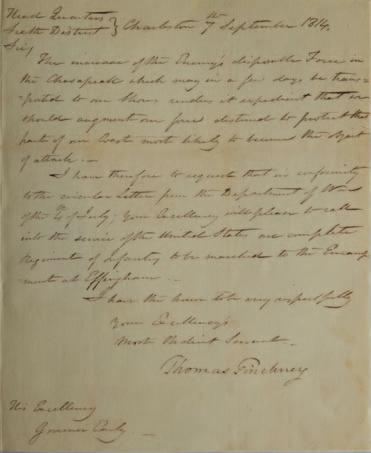 Head Quarters
Sixth District } Charleston 7th September 1814.
Sir,
The increase of the Enemy's disposable Force in
the Chesapeak which may in a few days be trans-
-ported to our Shores renders it expedient that we
should augment our force destined to protect that
part of our Coast most likely to become the object
of attack. —
I have therefore to request that in conformity
to the circular Letter from the Department of War
of the 4th of July; Your Excellency will please to call
into the service of the United States one complete
Regiment of Infantry to be marched to the Encamp
ment at Effingham —
I have the honor to be very respectfully
Your Excellency's
Most Obedient Servant —
Thomas Pinckney
His Excellency
Governor Early —